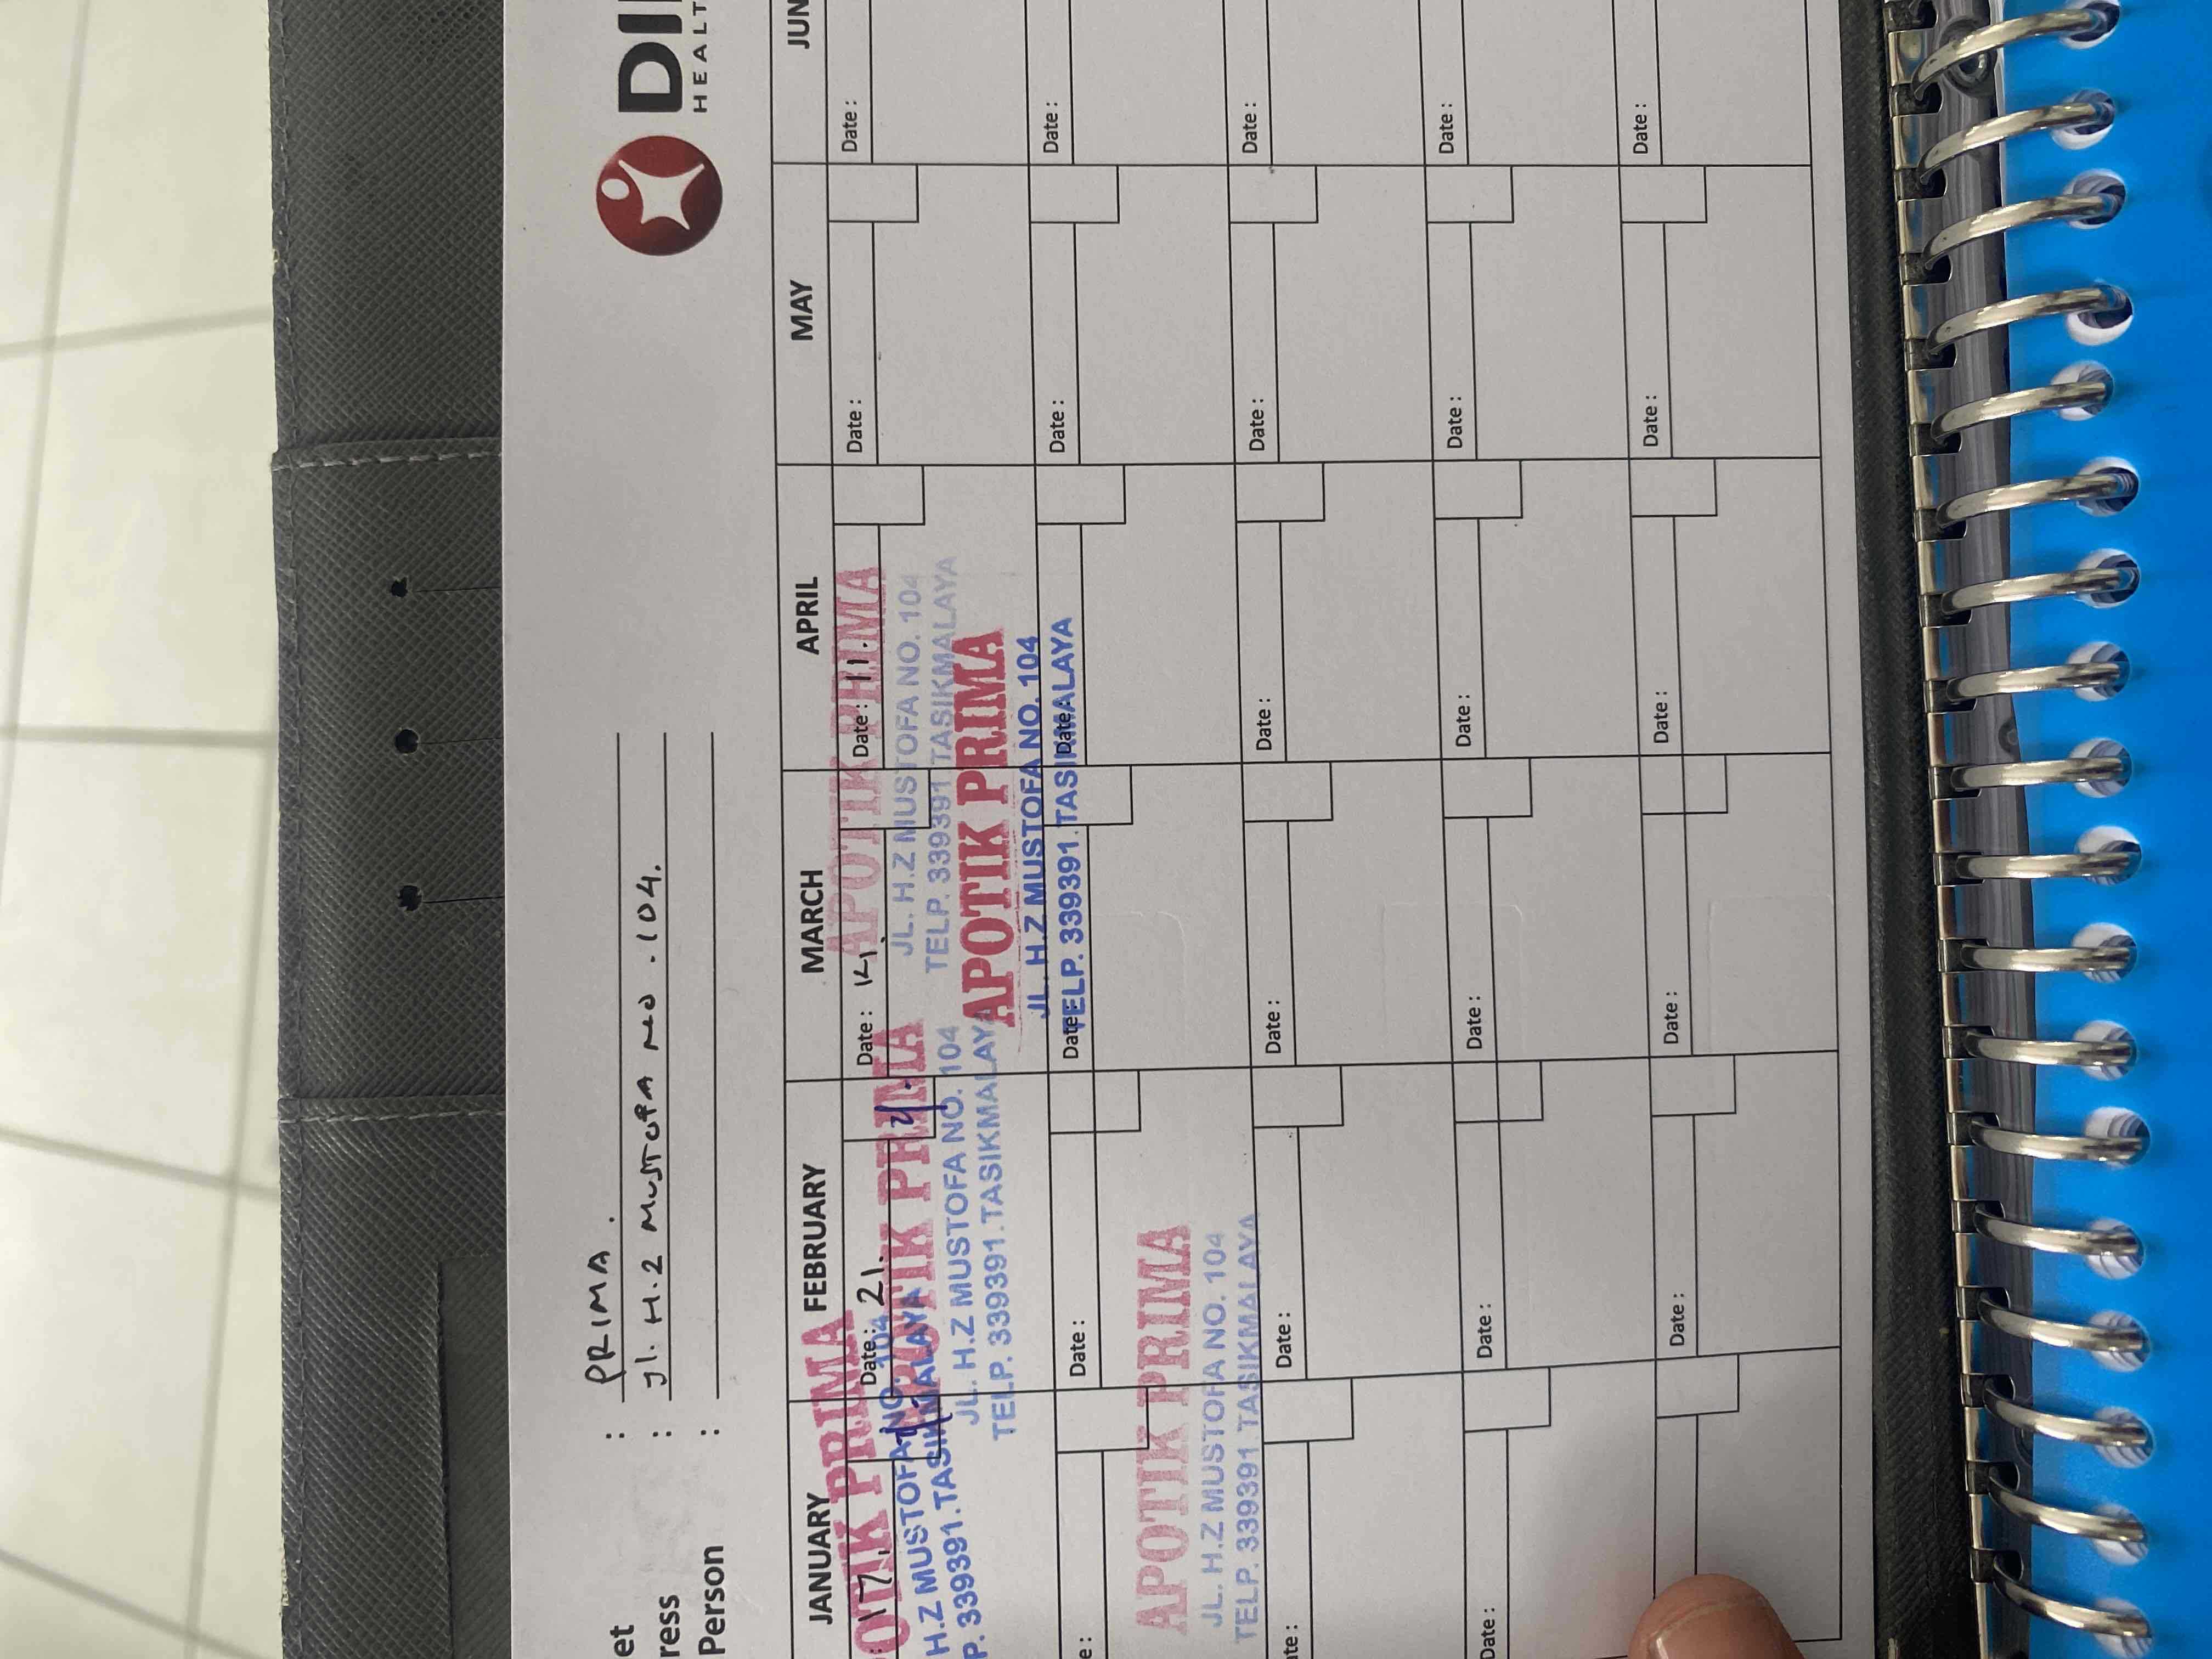 DI
HEALT
et : PRIMA.
ress : Jl. H.Z MUSTOFA NO. 104.
Person :
JANUARY FEBRUARY MARCH APRIL MAY JUN
17. Date: 21. Date: 14. Date: 11. Date: Date:
OTIK PRIMA
H.Z MUSTOFA NO. 104
P. 339391.TASIKMALAYA
APOTIK PRIMA
JL. H.Z MUSTOFA NO. 104
TELP. 339391.TASIKMALAYA
APOTIK PRIMA
JL. H.Z MUSTOFA NO. 104
TELP. 339391.TASIKMALAYA
APOTIK PRIMA
JL. H.Z MUSTOFA NO. 104
TELP. 339391.TASIKMALAYA
e: Date: Date: Date: Date: Date:
APOTIK PRIMA
JL. H.Z MUSTOFA NO. 104
TELP. 339391.TASIKMALAYA
te: Date: Date: Date: Date: Date:
Date: Date: Date: Date: Date: Date:
Date: Date: Date: Date: Date: